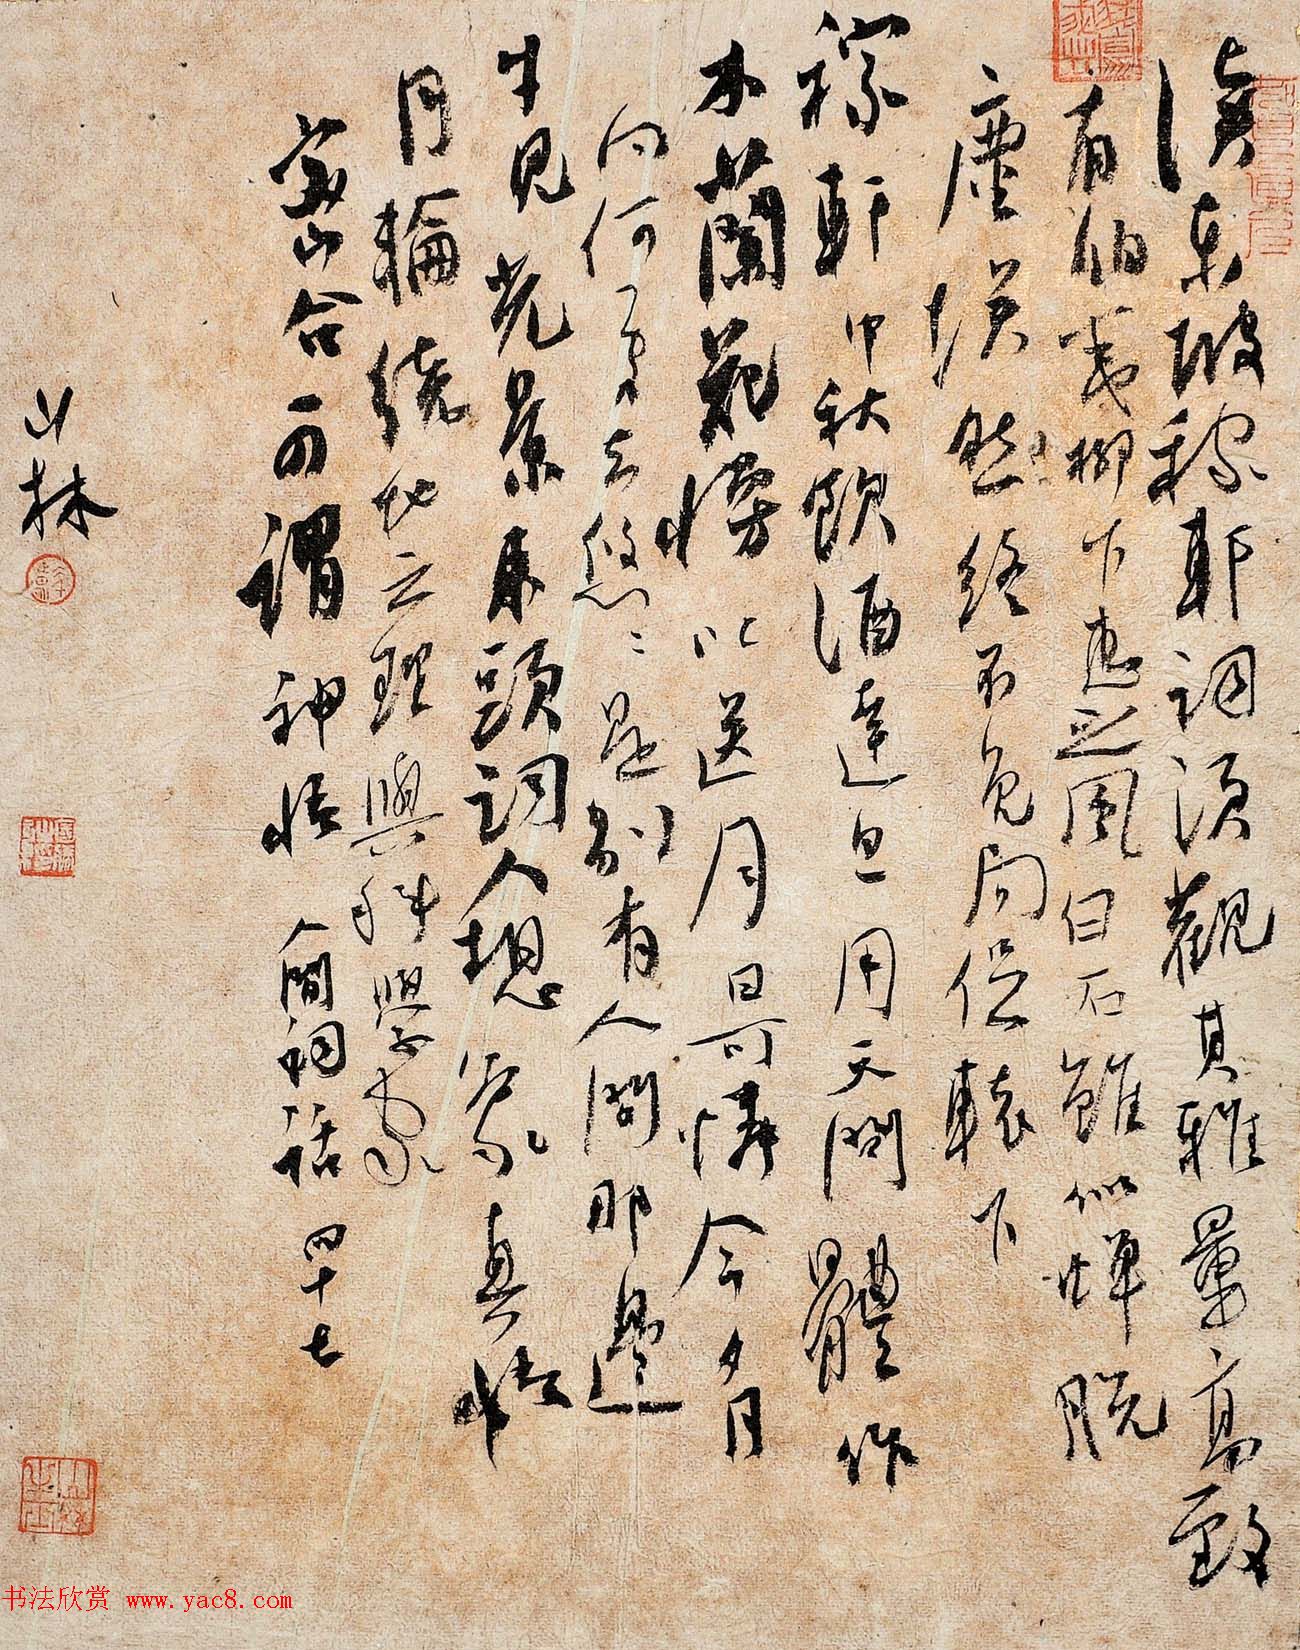 读东坡稼轩词须观其雅量高致
有伯夷柳下惠之风白石虽似蝉脱
塵埃然终不免局促辕下
稼轩中秋飲酒達旦用天問體作
木蘭花慢以送月曰可憐今夕月
向何處去悠悠是别有人間那邊
才見光景东頭詞人想象直悟
月輪绕地之理與科學家
密合可謂神悟人間詞話四十七
山林
书法欣赏 www.yac8.com